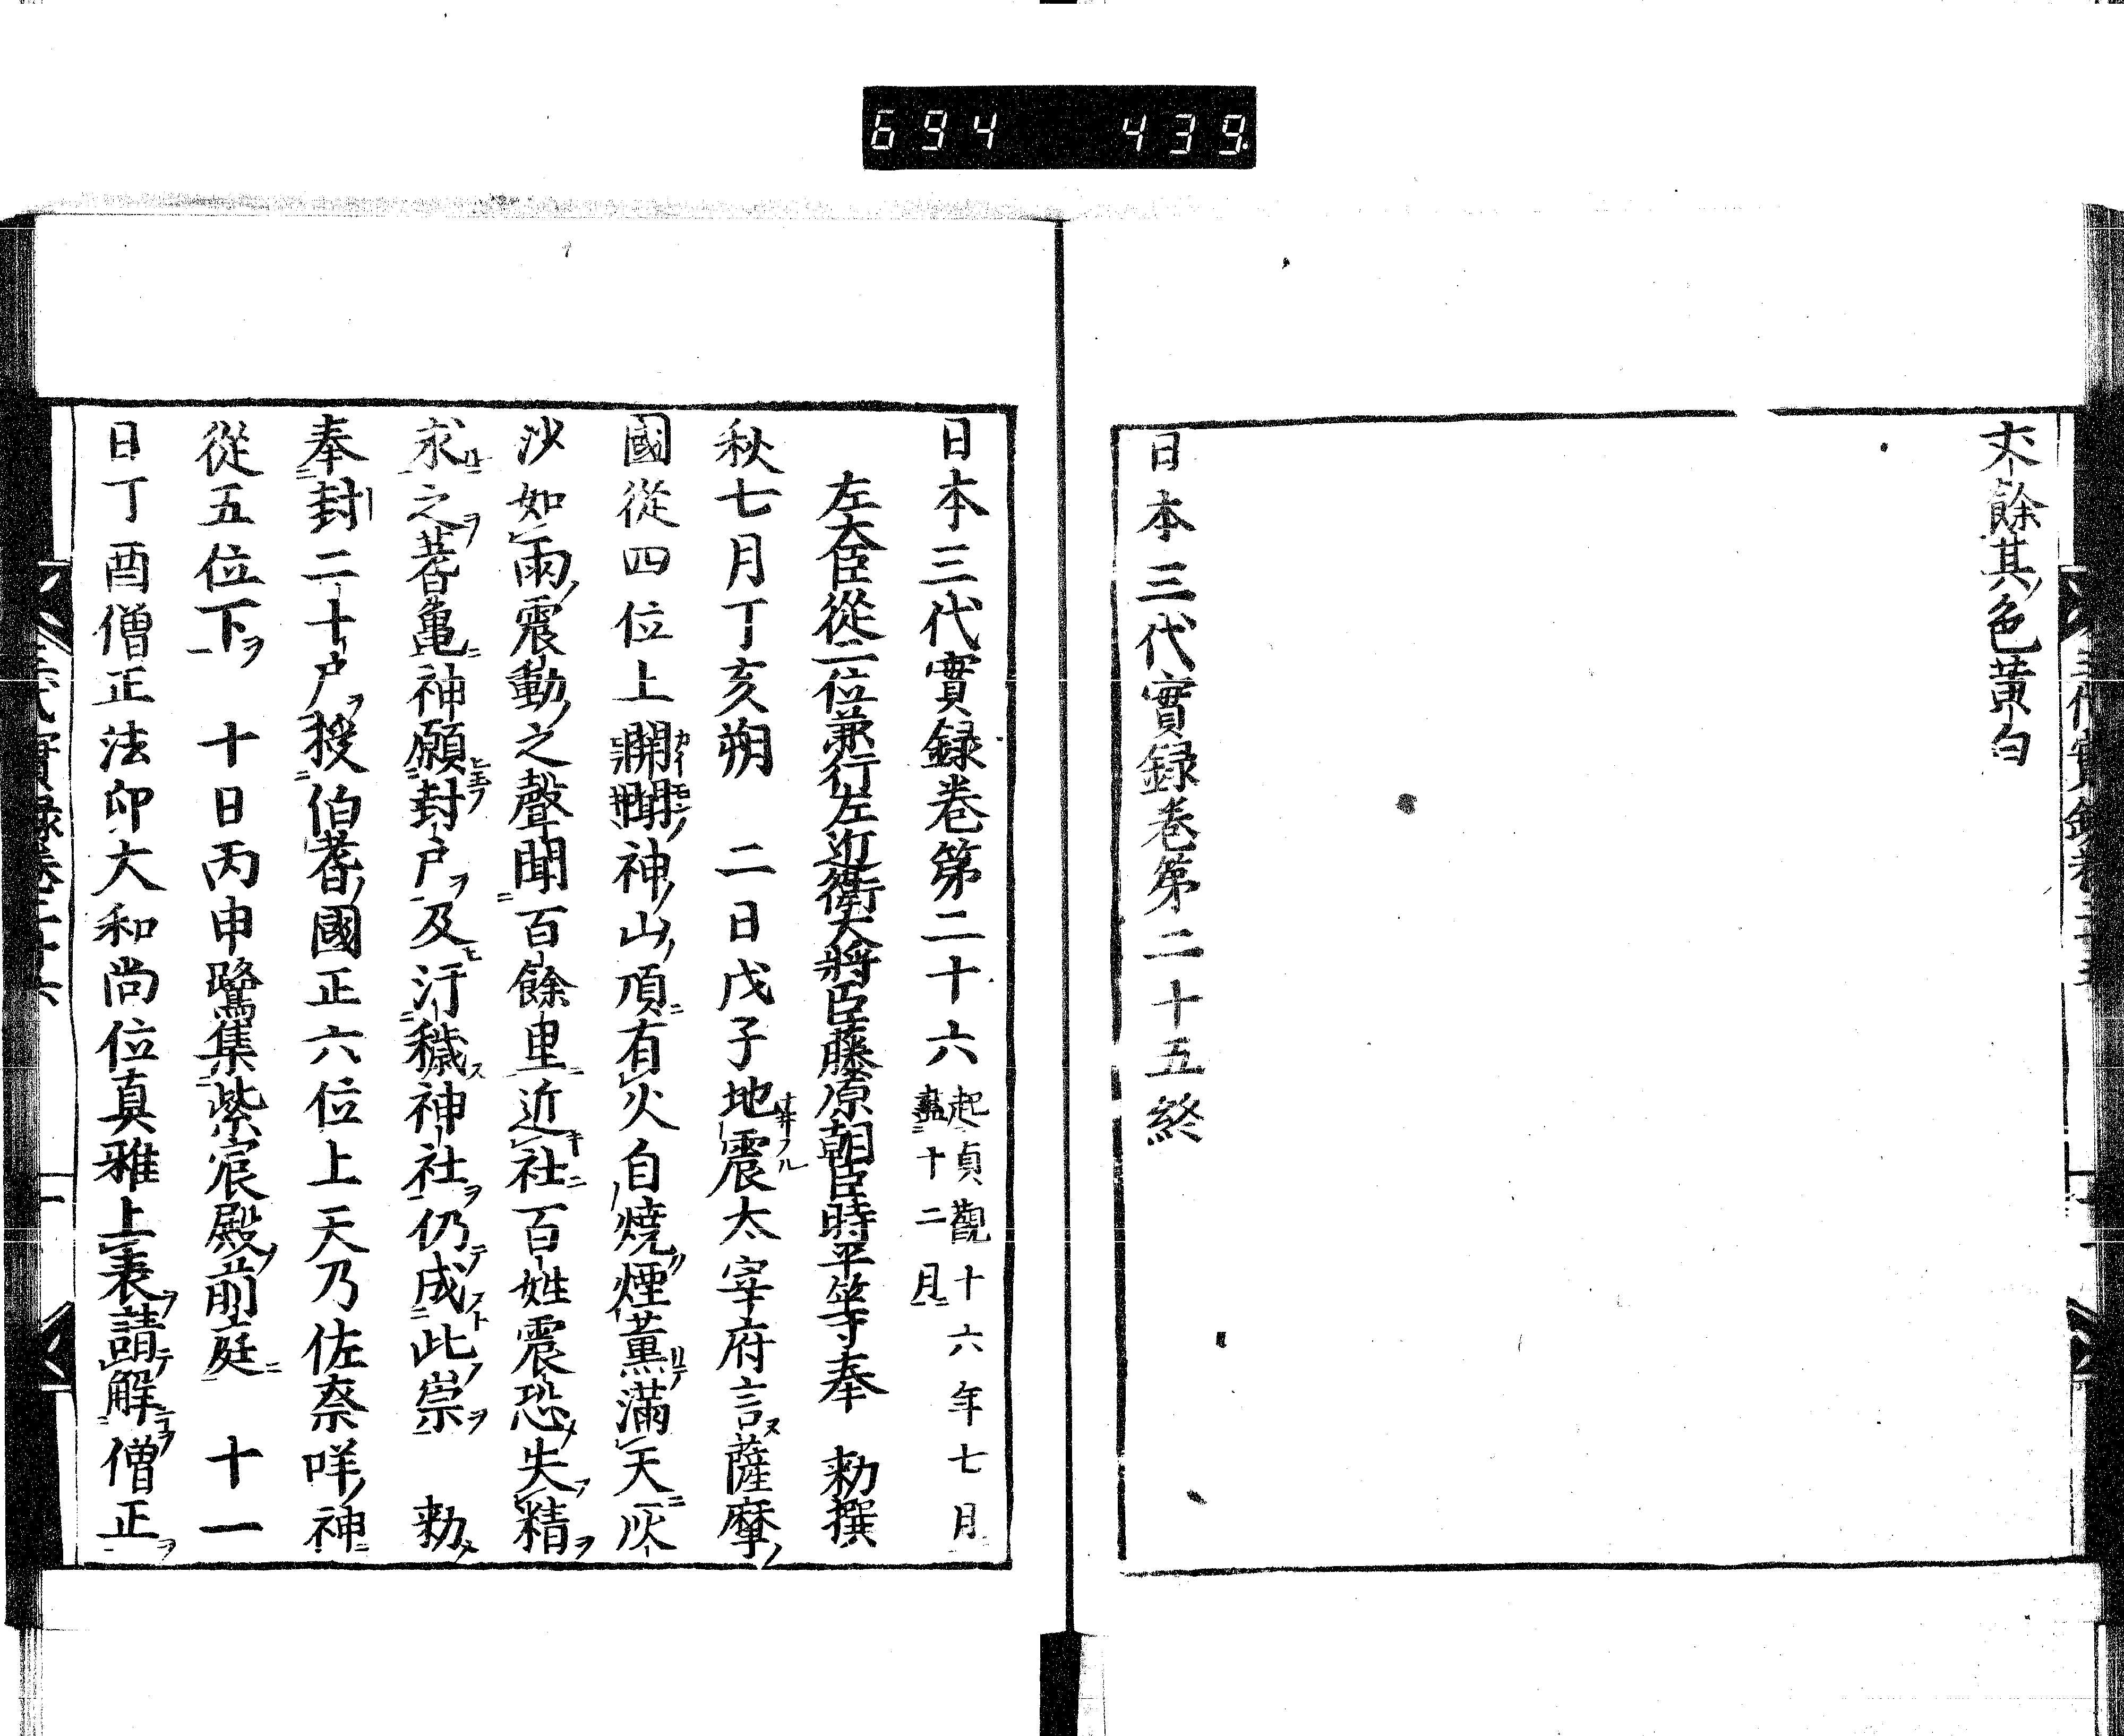 694 439
丈餘其色黄白
日本三代實録卷第二十五終
日本三代實録卷第二十六 起貞觀十六年七月
盡十二月
左大臣從二位兼行左近衛大將臣藤原朝臣時平等奉 勅撰
秋七月丁亥朔 二日戊子地震太宰府言薩摩
國從四位上開聞神山頂有火自燒煙薫滿天灰
沙如雨震動之聲聞百餘里近社百姓震恐失精
求之蓍龜神願封戸及汙穢神社仍成此祟 勅
奉封二十戸授伯耆國正六位上天乃佐奈咩神
從五位下 十日丙申鷺集紫宸殿前庭 十一
日丁酉僧正法印大和尚位真雅上表請解僧正